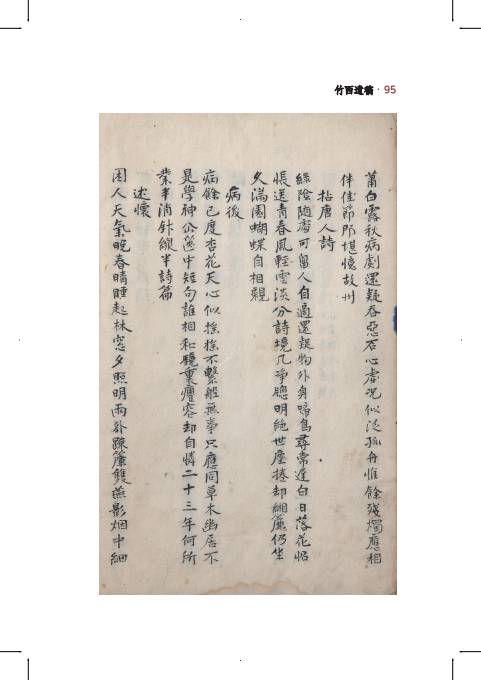 竹西遺稿 · 95
蒲白露秋病劇還疑吞惡石心虛况似泛孤舟惟餘殘燭應相
伴佳節那堪憶故州
拈唐人詩
綠陰隨處可留人自適還疑物外身啼鳥尋常遲白日落花怊
悵送青春風輕雲淡分詩境几淨窓明絶世塵捲却緗簾仍坐
久滿園蝴蝶自相親
病後
病餘已度杏花天心似搖搖不繫船無事只應同草木幽居不
是學神仙篋中短句誰相和鏡裏癯容却自憐二十三年何所
業半消針線半詩篇
述懷
困人天氣晩春晴睡起林窓夕照明雨外踈簾雙燕影烟中細